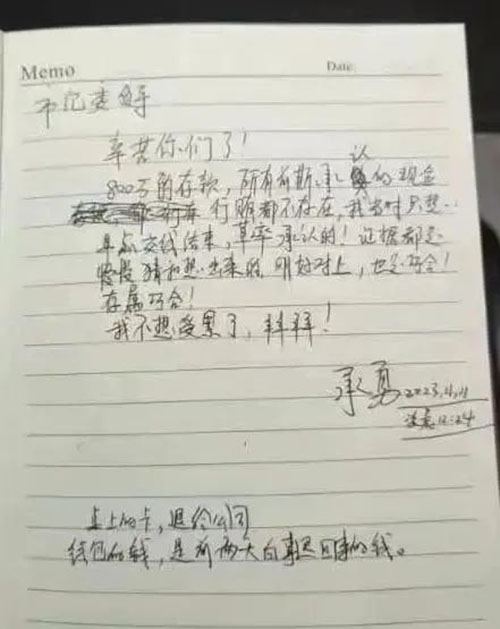 Memo
Date:
市纪委领导
辛苦你们了！
800万的存款，所有前期承认的现金
行贿都不存在，我当时只想
早点交钱结束，草率承认的！证据都是
慢慢猜和想出来的，刚好对上，也是巧合！
存属巧合！
我不想受累了，拜拜！
承勇 2023.11.11
凌晨12:24
桌上的卡，退给公司
钱包的钱，是前两天白事退回来的钱。